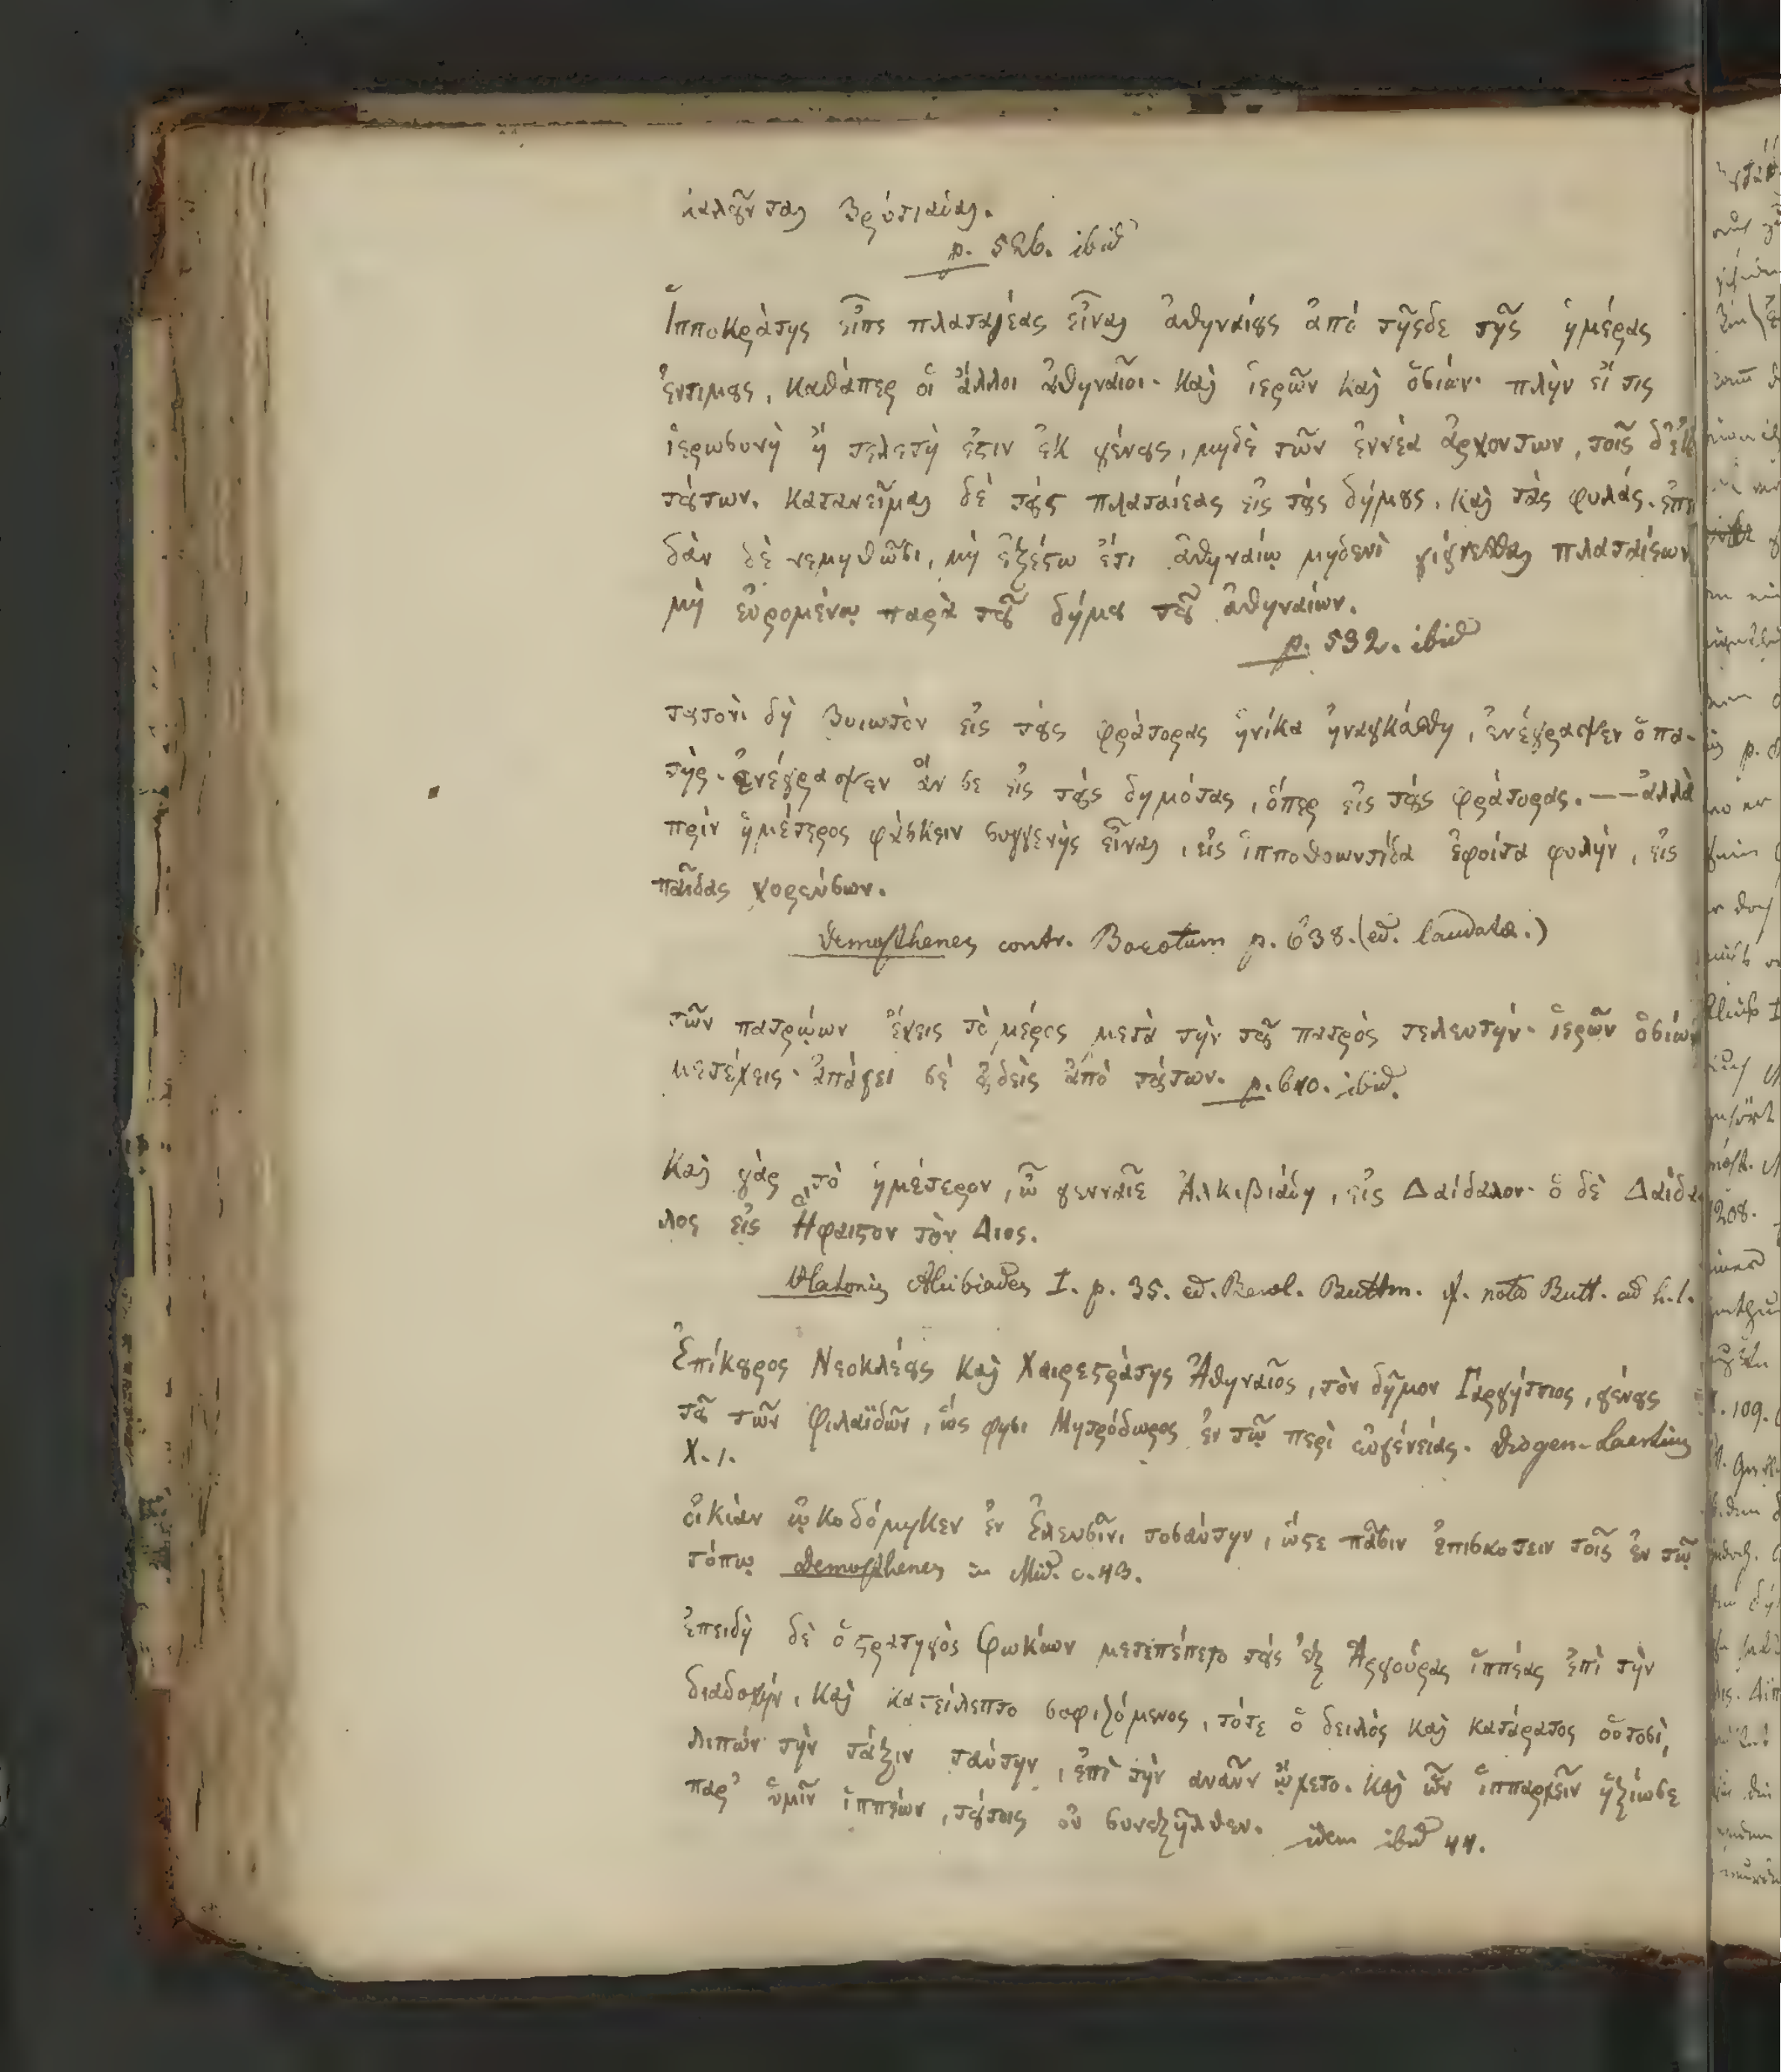 καλοῦνται Βρυτιάδαι.
p. 526. ibid
Ἱπποκράτης εἶπε πλαταιέας εἶναι ἀθηναίους ἀπὸ τῆςδε τῆς ἡμέρας
ἐντίμους, καθάπερ οἱ ἄλλοι ἀθηναῖοι· καὶ ἱερῶν καὶ ὁσίων· πλὴν εἴ τις
ἱερωσυνὴ ἢ τελετή ἐστιν ἐκ γένους, μηδὲ τῶν ἐννέα ἀρχοντων, τοῖς δ' ἐκ
τούτων. κατανεῖμαι δὲ τοὺς πλαταιέας εἰς τοὺς δήμους, καὶ τὰς φυλάς. ἐπει
δὰν δὲ νεμηθῶσι, μὴ ἐξέστω ἔτι ἀθηναίῳ μηδενὶ γίγνεσθαι πλαταιέων
μὴ εὑρομένῳ παρὰ τοῦ δήμου τοῦ ἀθηναίων.
p. 532. ibid
τουτονὶ δὴ Βοιωτὸν εἰς τοὺς φράτορας ἡνίκα ἠναγκάσθη, ἐνέγραψεν ὁ πα-
τήρ. ἀνέγραψεν ἄν σε εἰς τοὺς δημότας, ὅπερ εἰς τοὺς φράτορας. — — ἀλλὰ
πρὶν ἡμέτερος φάσκειν συγγενὴς εἶναι, εἰς ἱπποθωντίδα ἐφοίτα φυλήν, εἰς
παῖδας χορεύσων.
Demosthenes contr. Boeotum p. 638. (ed. laudata.)
τῶν πατρῴων ἔχεις τὸ μέρος μετὰ τὴν τοῦ πατρὸς τελευτήν· ἱερῶν ὁσίων
μετέχεις· ἀπάγει σὲ οὐδεὶς ἀπὸ τούτων. p. 640. ibid.
Καὶ γὰρ τὸ ἡμέτερον, ὦ γενναῖε Ἀλκιβιάδη, εἰς Δαίδαλον· ὁ δὲ Δαίδα
λος εἰς Ἥφαιστον τὸν Διος.
Platonis Alcibiades I. p. 35. ed. Berol. Buttm. cf. nota Butt. ad h. l.
Ἐπίκουρος Νεοκλέους καὶ Χαιρεστράτης Ἀθηναῖος, τὸν δῆμον Γαργήττιος, γένους
τοῦ τῶν Φιλαϊδῶν, ὥς φησι Μητρόδωρος ἐν τῷ περὶ εὐγένείας. Diogen. Laertius
X. 1.
οἰκίαν ᾠκοδόμηκεν ἐν Ἐλευσῖνι τοσαύτην, ὥστε πᾶσιν ἐπισκοτειν τοῖς ἐν τῷ
τόπῳ Demosthenes in Mid. c. 43.
ἐπειδὴ δὲ ὁ στρατηγὸς Φωκίων μετεπέπετο τοὺς ἐξ Ἀργούρας ἱππέας ἐπὶ τὴν
διαδοχήν, καὶ κατείλεπτο σοφιζόμενος, τότε ὁ δειλὸς καὶ κατάρατος οὑτοσὶ,
λιπὼν τὴν τάξιν ταύτην, ἐπὶ τὴν αναῦν ᾤχετο. καὶ ὧν ἱππαρχεῖν ἠξίωσε
παρ' ὑμῖν ἱππέων, τούτοις οὐ συνεξῆλθεν. idem ibid 44.